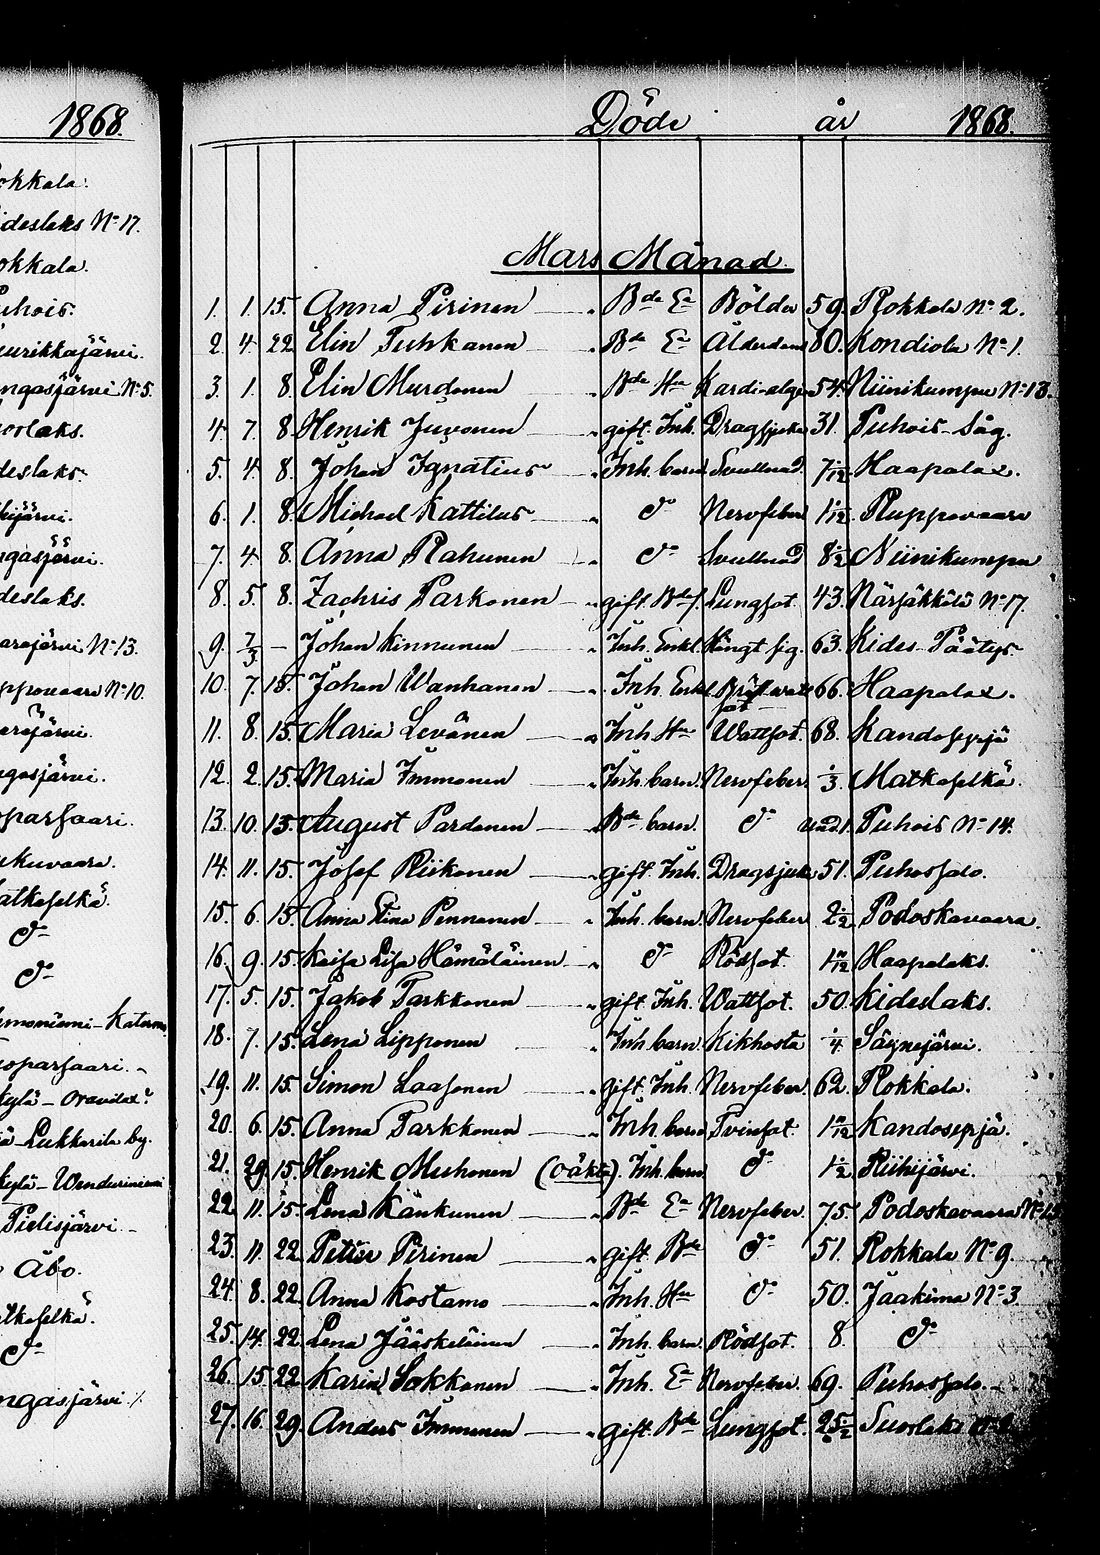 1868.
okkala.
ideslaks No 17.
okkala.
uhois.
urikkajärvi.
ngasjärvi No 5.
orlaks.
deslaks.
hijärvi.
ngasjärvi.
deslaks.
arajärvi No 13.
ppovaara No 10.
eräjärvi.
ngasjärvi.
oparsaari.
ukuvaara.
atkaselkä.
do
do
oparsaari.
Lukkarila by.
Pielisjärvi
Åbo.
tkaselkä.
do
ngasjärvi.
Döde år 1868.
Mars Månad.
1. 1. 15. Anna Pirinen " Bde Ea Bölder 59. Rokkala No 2.
2. 4. 22 Elin Tuhkanen " Bde Ea Ålderdom 80. Kondiola No 1.
3. 1. 8. Elin Murdonen " Bde Hu 54. Niinikumpu No 13.
4. 7. 8. Henrik Juvonen " gift. Inh. Dragsjuka 31. Puhois-Såg.
5. 4. 8. Johan Ignatius " Inh. barn Svullnad. 7/12 Haapalax.
6. 1. 8. Michael Kattilus " do Nervfeber 1 1/12 Ruppovaara
7. 4. 8. Anna Rahunen " do Svullnad 8 1/2 Niinikumpu
8. 5. 8. Zachris Parkonen " gift. Bde Lungsot. 43. Närsäkkälä No 17.
9. 7/3 - Johan Kinnunen " Inh. Enkl. 63. Kides Päätys
10. 7. 15. Johan Wanhanen " Inh. Enkl. 66. Haapalax.
11. 8. 15. Maria Levänen " Inh Hu Wattsot. 68. Kandosepjä
12. 2. 15. Maria Immonen " Inh. barn Nervfeber. 1/3. Matkaselkä.
13. 10. 15. August Pardanen " Bde barn. do und. 1. Puhois No 14.
14. 11. 15. Josef Riikonen " gift. Inh. Dragsjuk 51. Puhossalo.
15. 6. 15. Anna Stina Pennanen " Inh. barn Nervfeber 2 1/2 Podoskavaara.
16. 9. 15. Kaisa Lisa Hämäläinen " do Rödsot. 1 /12 Haapalaks.
17. 5. 15. Jakob Tarkkonen " gift. Inh. Wattsot. 50. Kideslaks.
18. 7. 15. Lena Lipponen " Inh. barn Kikhosta 1/4 Säynejärvi.
19. 11. 15. Simon Laasonen " gift. Inh Nervfeber. 62. Rokkala.
20. 6. 15. Anna Tarkkonen " Inh. barn Tvinsot. 1 /12 Kandosepjä.
21. 29. 15. Henrik Muhonen (oäkta). Inh. barn do 1 1/2 Riihijärvi.
22. 11. 15. Lena Känkunen " Bde Ea Nervfeber. 75. Podoskavaara
23. 11. 22. Petter Pirinen " gift. Bde do 51. Rokkala No 9.
24. 8. 22. Anna Kostamo " Inh. Hu do 50. Jaakima No 3.
25. 14. 22. Lena Jääskeläinen " Inh. barn Rödsot. 8. do
26. 15. 22. Karin Sokkanen " Inh. Ea Nervfeber. 69. Puhossalo.
27. 16. 29. Anders Immonen " gift. Bde Lungsot. 25 1/2 Suorlaks